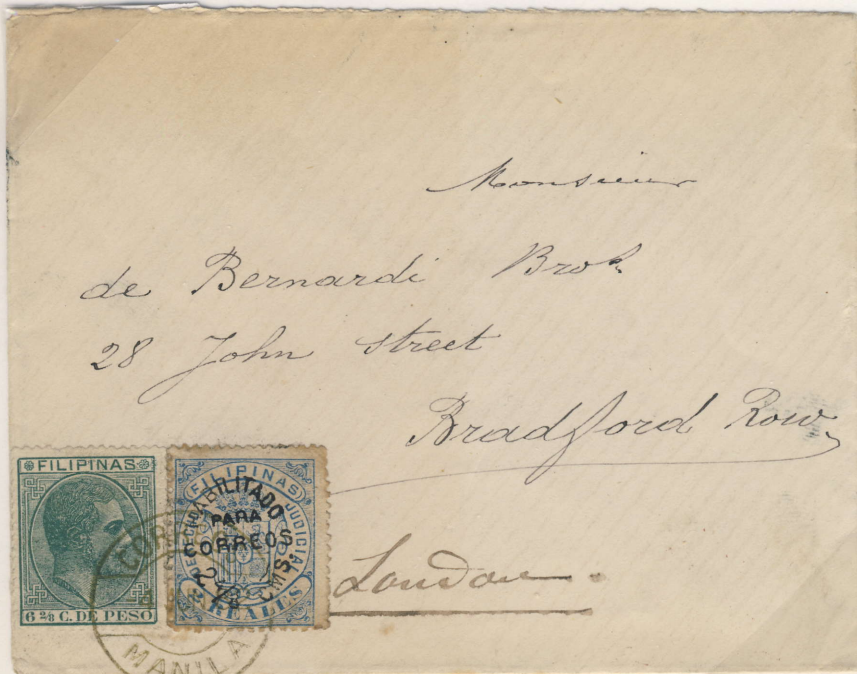 Monsieur
de Bernardi Bros.
28 John Street
Bradford Row,
London.
FILIPINAS
6 2/8 C. DE PESO
FILIPINAS
JUDICIAL
HABILITADO
PARA
CORREOS
2 4/8 CMS.
REALES
MANILA